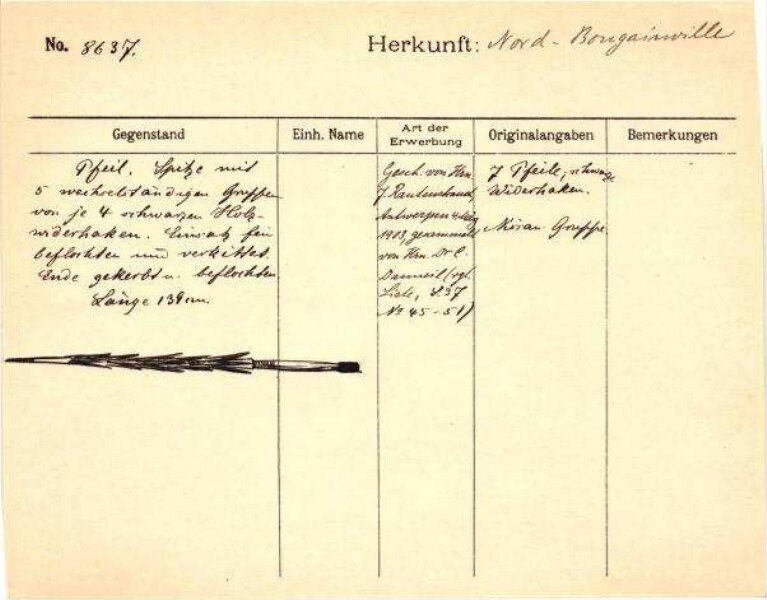 No. 8637.
Herkunft: Nord-Bougainville
Gegenstand
Einh. Name
Art der Erwerbung
Originalangaben
Bemerkungen
Pfeil. Spitze mit
5 wechselständigen Gruppen
von je 4 schwarzen Holz-
widerhaken. Einsatz fein
beflochten und verkittet.
Ende gekerbt u. beflochten.
Länge 139cm.
Gesch. von Hrn.
J Rautenstrauch,
Antwerpen
1913, gesammelt
von Hrn. Dr C.
(vgl.
Liste, S. 37
No 45-51)
7 Pfeile, schwarze
Widerhaken.
Gruppe